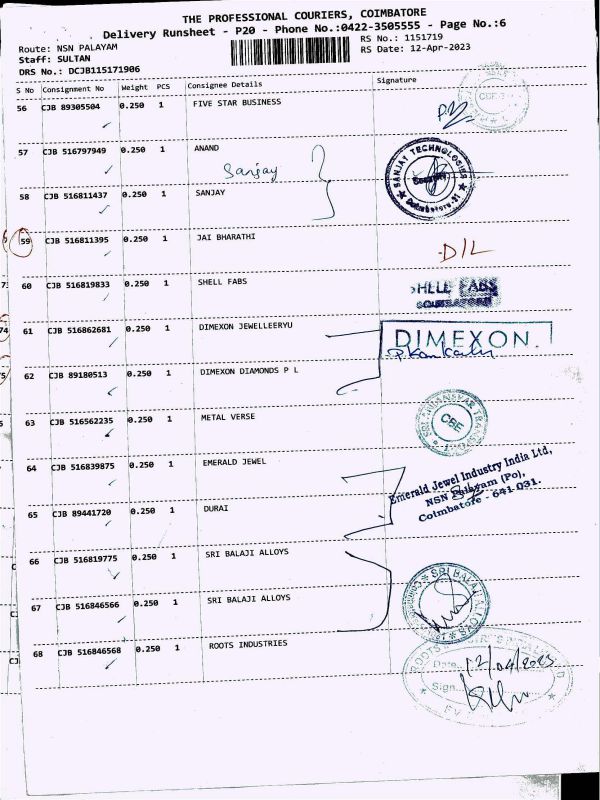 THE PROFESSIONAL COURIERS, COIMBATORE
Delivery Runsheet - P20 - Phone No.:0422-3505555 - Page No.:6
Route: NSN PALAYAM
RS No.: 1151719
Staff: SULTAN
RS Date: 12-Apr-2023
DRS No.: DCJB115171906
S No Consignment No Weight PCS Consignee Details Signature
56 CJB 89305504 0.250 1 FIVE STAR BUSINESS
CBE
57 CJB 516797949 0.250 1 ANAND
Sanjay
SANJAY TECHNOLOGIES
Security
Coimbatore-21
58 CJB 516811437 0.250 1 SANJAY
59 CJB 516811395 0.250 1 JAI BHARATHI
D/L
60 CJB 516819833 0.250 1 SHELL FABS
SHELL FABS
COIMBATORE
61 CJB 516862681 0.250 1 DIMEXON JEWELLEERYU
DIMEXON.
62 CJB 89180513 0.250 1 DIMEXON DIAMONDS P L
63 CJB 516562235 0.250 1 METAL VERSE
CBE
64 CJB 516839875 0.250 1 EMERALD JEWEL
Emerald Jewel Industry India Ltd,
NSN Palayam (Po),
Coimbatore - 641 031.
65 CJB 89441720 0.250 1 DURAI
66 CJB 516819775 0.250 1 SRI BALAJI ALLOYS
67 CJB 516846566 0.250 1 SRI BALAJI ALLOYS
SRI BALAJI ALLOYS
68 CJB 516846568 0.250 1 ROOTS INDUSTRIES
ROOTS
Date 12/04/2023
Sign